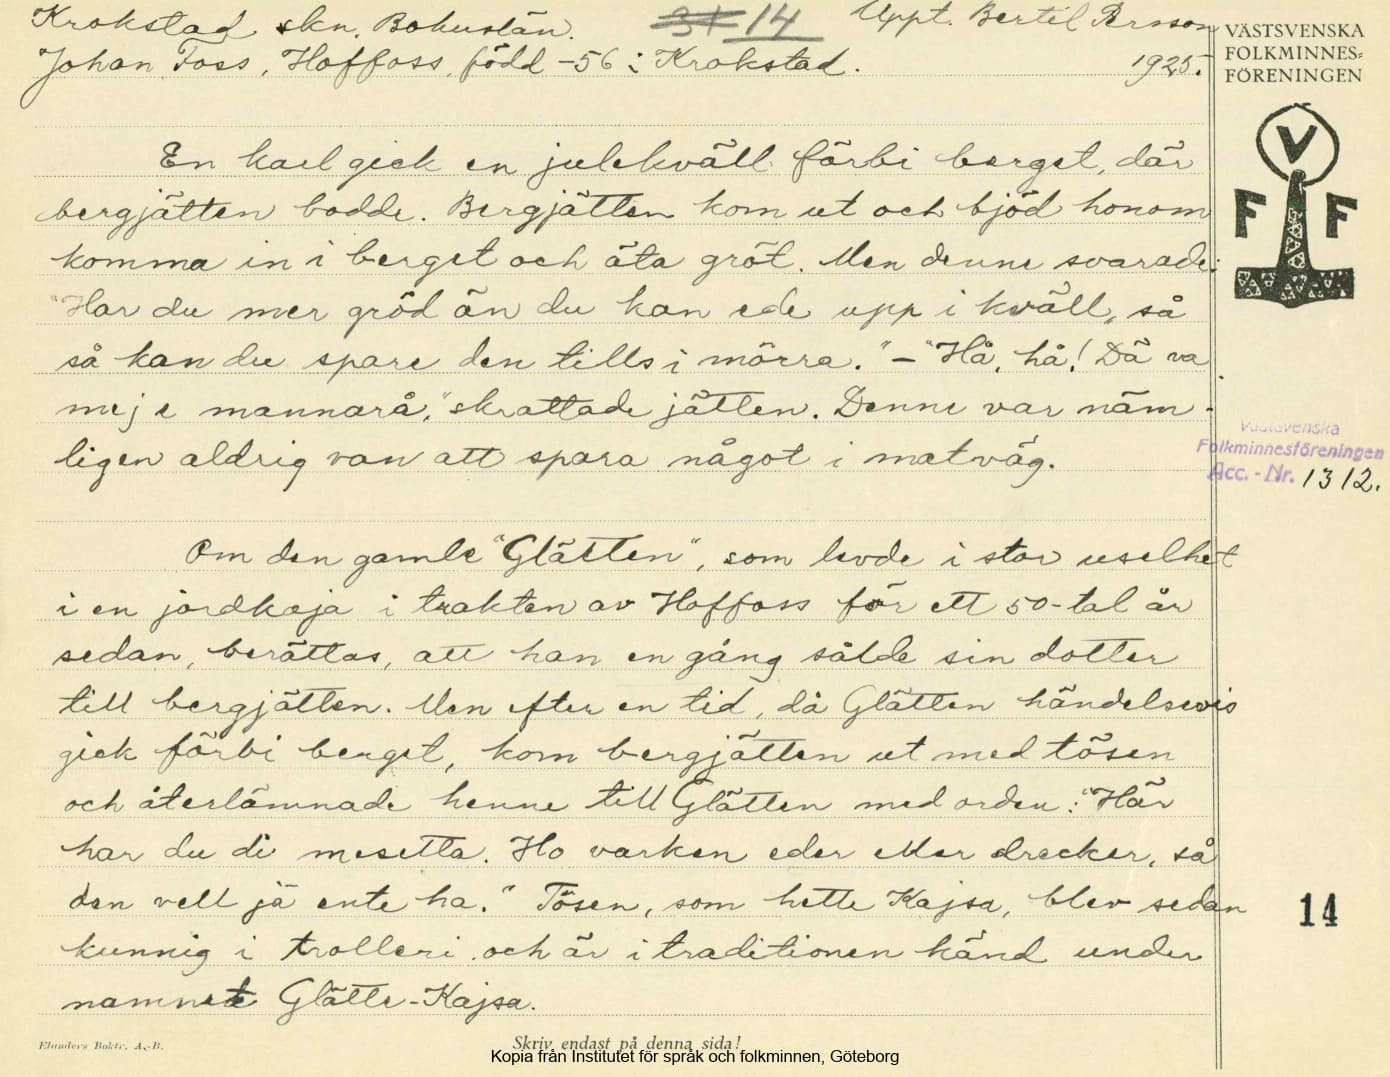 Krokstad skn. Bohuslän.
14
Uppt. Bertil Persson
Johan Foss, Hoffoss, född -56 i Krokstad.
1925.
VÄSTSVENSKA
FOLKMINNES-
FÖRENINGEN
V
F F
En karl gick en julekväll förbi berget, där
bergjätten bodde. Bergjätten kom ut och bjöd honom
komma in i berget och äta gröt. Men denne svarade:
"Har du mer gröd än du kan ede upp i kväll, så
så kan du spare den tills i mörra." – "Hå, hå! Dä va
mej e mannarå," skrattade jätten. Denne var näm-
ligen aldrig van att spara något i matväg.
Västsvenska
Folkminnesföreningen
Acc. - Nr. 1312.
Om den gamle "Glätten", som levde i stor uselhet
i en jordkoja i trakten av Hoffoss för ett 50-tal år
sedan, berättas, att han en gång sålde sin dotter
till bergjätten. Men efter en tid, då Glätten händelsevis
gick förbi berget, kom bergjätten ut med tösen
och återlämnade henne till Glätten med orden: "Här
har du di mesetta. Ho varken eder eller drecker, så
den vell jä ente ha." Tösen, som hette Kajsa, blev sedan
kunnig i trolleri och är i traditionen känd under
namnet Glätte-Kajsa.
14
Elanders Boktr. A.-B.
Skriv endast på denna sida!
Kopia från Institutet för språk och folkminnen, Göteborg